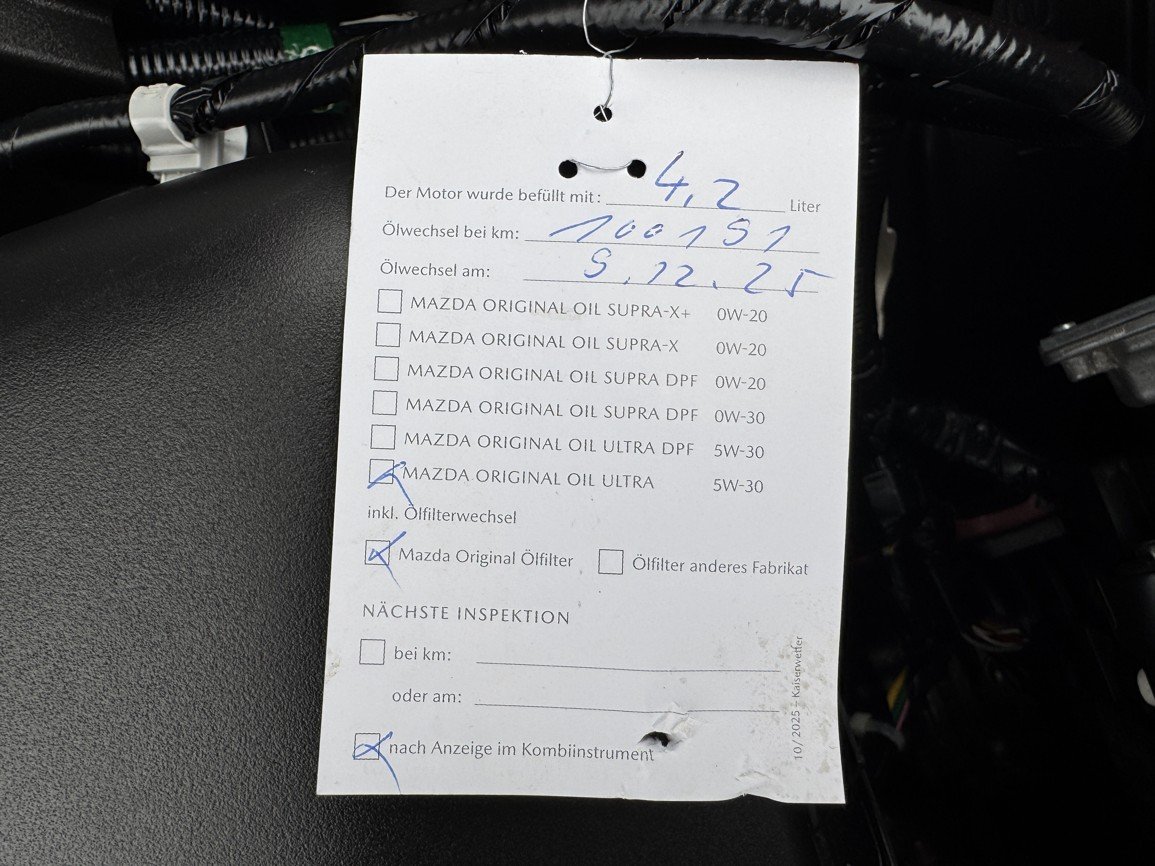 Der Motor wurde befüllt mit: 4,2 Liter
Ölwechsel bei km: 100191
Ölwechsel am: 9.12.25
MAZDA ORIGINAL OIL SUPRA-X+ 0W-20
MAZDA ORIGINAL OIL SUPRA-X 0W-20
MAZDA ORIGINAL OIL SUPRA DPF 0W-20
MAZDA ORIGINAL OIL SUPRA DPF 0W-30
MAZDA ORIGINAL OIL ULTRA DPF 5W-30
MAZDA ORIGINAL OIL ULTRA 5W-30
inkl. Ölfilterwechsel
Mazda Original Ölfilter Ölfilter anderes Fabrikat
NÄCHSTE INSPEKTION
bei km:
oder am:
nach Anzeige im Kombiinstrument
10/2025 – Kaiserwetter